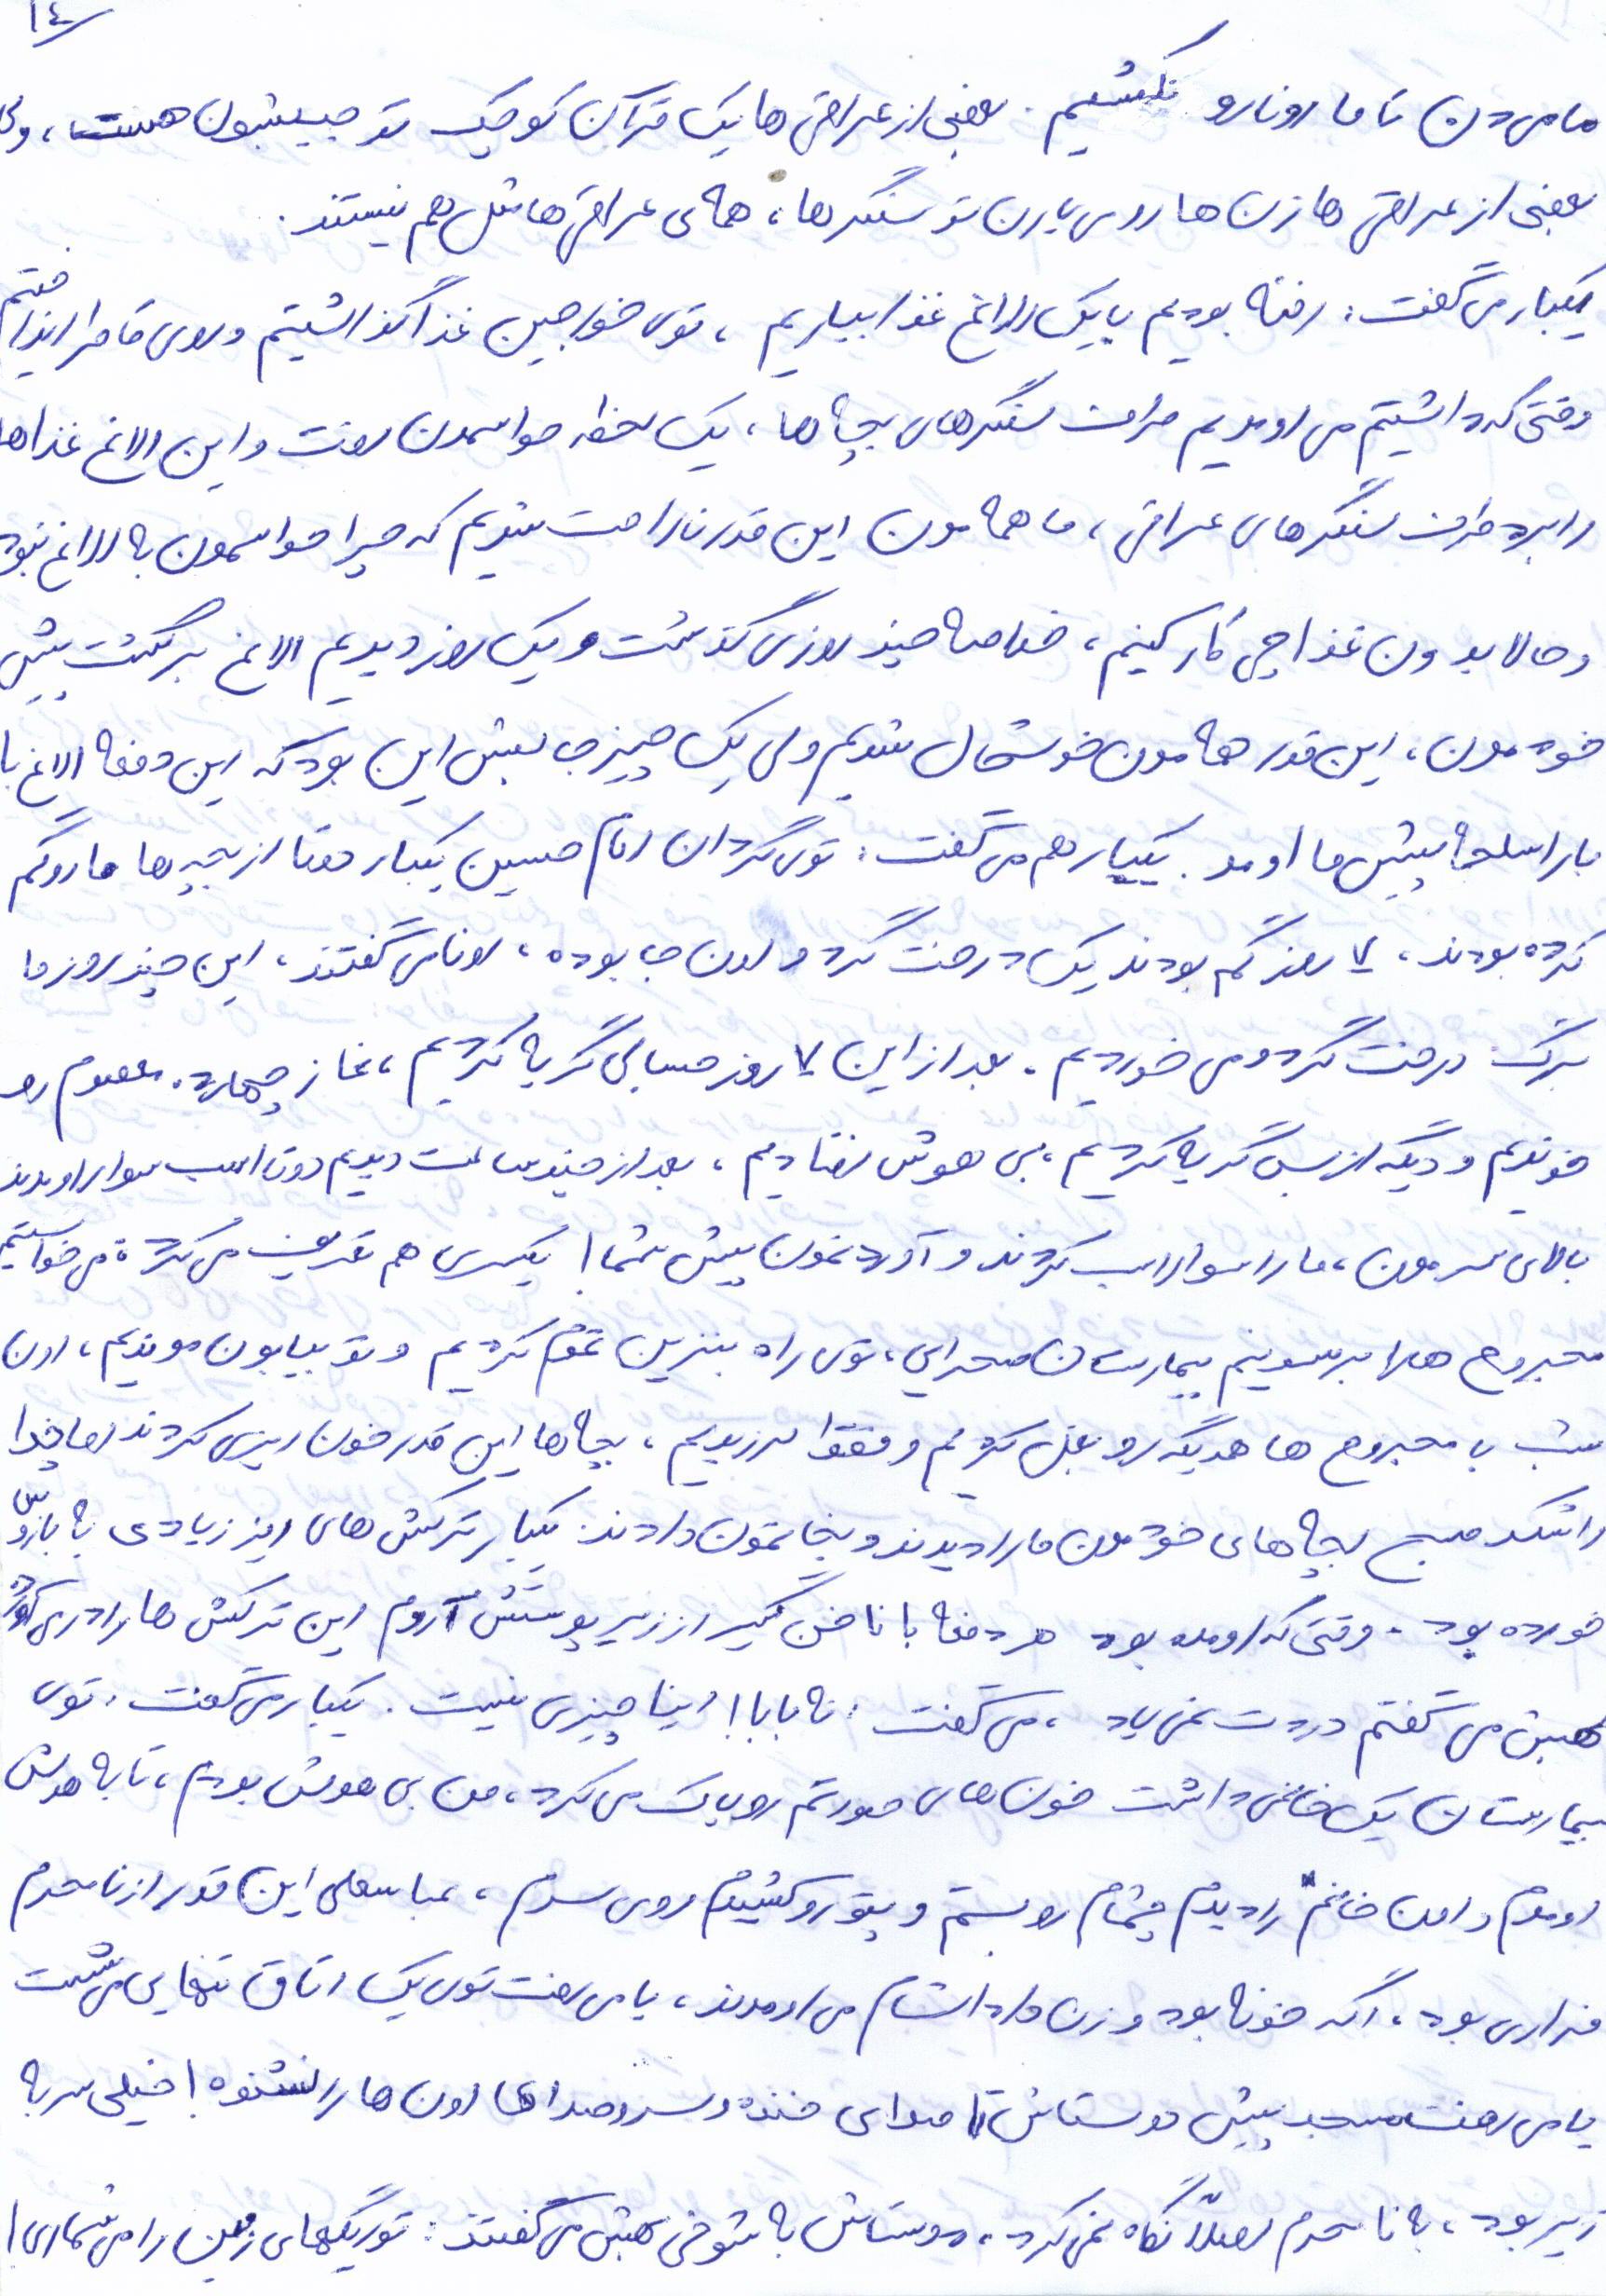 ۱۴
ما می دن تا ما اونارو نکشیم. بعضی از عراقی ها یک قرآن کوچیک تو جیبشون هست، ولی
بعضی از عراقی ها زن ها رو می یارن تو سنگرها، همه ی عراقی ها مثل هم نیستند.
یکبار می گفت: رفته بودیم با یک الاغ غذا بیاریم، توی خورجین غذا گذاشتیم و روی قاطر انداختیم
وقتی که داشتیم می اومدیم طرف سنگرهای بچه ها، یک لحظه حواسمون رفت و این الاغ غذاها
را برد طرف سنگرهای عراقی، ما همه مون این قدر ناراحت شدیم که چرا حواسمون به الاغ نبود
و حالا بدون غذا چی کار کنیم، خلاصه چند روزی گذشت و یک روز دیدیم الاغ برگشت پیش
خودمون، این قدر همه مون خوشحال شدیم ولی یک چیز جالبش این بود که این دفعه الاغ با
بار اسلحه پیش ما اومد. یکبار هم می گفت: توی گردان امام حسین یکبار دوتا از بچه ها ما رو گم
کرده بودند، ۷ روز گم بودند یک درخت گردو اون جا بوده، اونا می گفتند، این چند روز ما
برگ درخت گردو می خوردیم. بعد از این ۷ روز حسابی گریه کردیم، نماز چهارده معصوم رو
خوندیم و دیگه از بس گریه کردیم، بی هوش افتادیم، بعد از چند ساعت دیدیم دوتا اسب سوار اومدند
بالای سرمون، ما را سوار اسب کردند و آوردنمون پیش شما! یکسری هم تعریف می کرد: می خواستیم
مجروح ها را برسونیم بیمارستان صحرایی، توی راه بنزین تموم کردیم و تو بیابون موندیم، اون
شب با مجروح ها همدیگه رو بغل کردیم و فقط لرزیدیم، بچه ها این قدر خون ریزی کردند اما خدا
را شکر صبح بچه های خودمون ما را دیدند و نجاتمون دادند. یکبار ترکش های ریز زیادی به بازوش
خورده بود. وقتی که اومده بود هر دفعه با ناخن گیر از زیر پوستش آروم این ترکش ها را در می آورد
بهش می گفتم دردت نمی یاد، می گفت: نه بابا! اینا چیزی نیست. یکبار می گفت، توی
بیمارستان یک خانمی داشت خون های صورتم رو پاک می کرد، من بی هوش بودم، تا به هوش
اومدم و اون خانم را دیدم چشام رو بستم و پتو رو کشیدم روی سرم، عباسعلی این قدر از نامحرم
فراری بود، اگه خونه بود و زن داداشام می اومدند، یا می رفت توی یک اتاق تنهایی می نشست
یا می رفت مسجد پیش دوستاش تا صدای خنده و سروصداهای اون ها را نشنوه! خیلی سر به
زیر بود، به نامحرم اصلاً نگاه نمی کرد، دوستاش به شوخی بهش می گفتند: تو ریگهای زمین را می شماری!